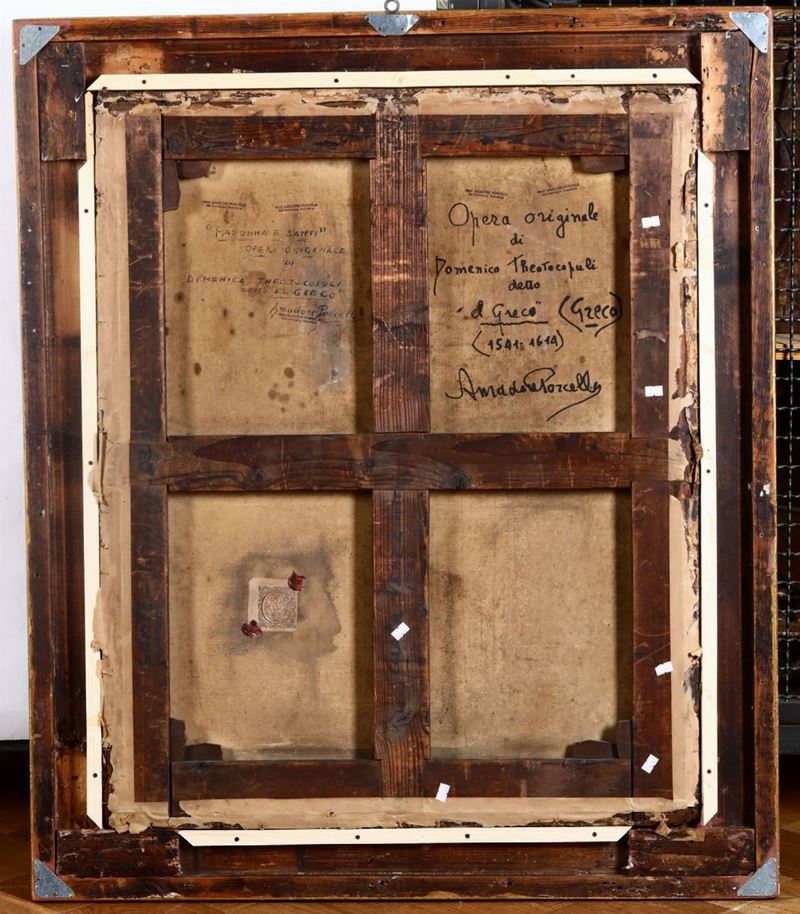 "MADONNA E SANTI"
OPERA ORIGINALE
DI
DOMENICA THEOTOCOPULI
DETTO "EL GRECO"
Amadore Porcella
Opera originale
di
Domenico Theotocopuli
detto
"el Greco" (Greco)
(1541=1614)
Amadore Porcella